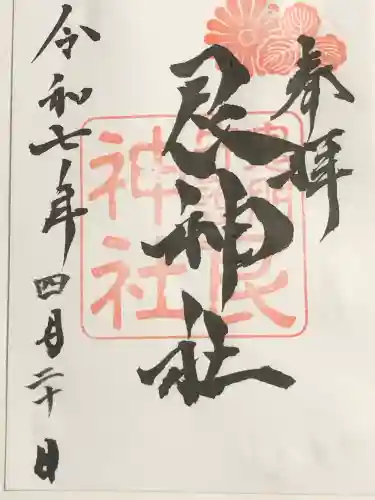 奉拝
艮神社
令和七年四月二十日
神社